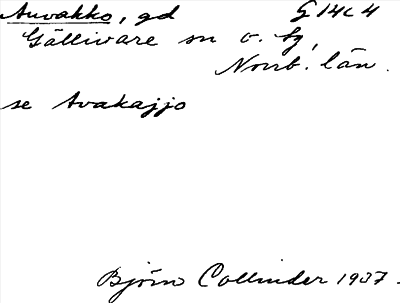 Auvakko, gd G14c4
Gällivare sn o. tg,
Norrb. län.
se Avakajjo
Björn Collinder 1937.